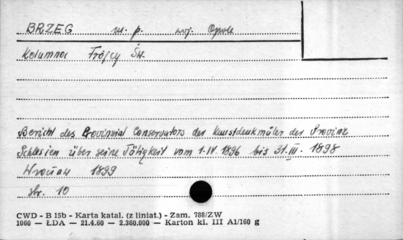 BRZEG m. p. woj. Opole
Kolumna Trójcy Św.
Bericht des Provinzial Conservators der Kunstdenkmäler der Provinz
Schlesien über seine Tätigkeit vom 1.IV 1896 bis 31.III. 1898
Wrocław 1899
str. 10
CWD - B 15b - Karta katal. (z liniat.) - Zam. 788/ZW
1060 — ŁDA — 21.4.60 — 2.360.000 — Karton kl. III A1/160 g